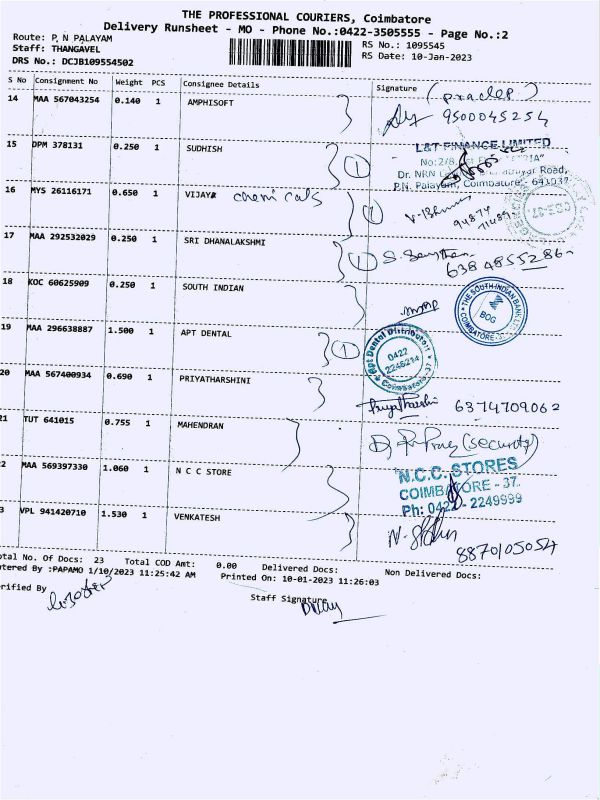 THE PROFESSIONAL COURIERS, Coimbatore
Delivery Runsheet - MO - Phone No.:0422-3505555 - Page No.:2
Route: P, N PALAYAM
Staff: THANGAVEL
DRS No.: DCJB109554502
RS No.: 1095545
RS Date: 10-Jan-2023
S No Consignment No Weight PCS Consignee Details Signature
14 MAA 567043254 0.140 1 AMPHISOFT (pradeep) 9500045254
15 DPM 378131 0.250 1 SUDHISH 1
L&T FINANCE LIMITED
No:2/8,
Dr. NRN Road,
P.N. Palayam, Coimbatore - 641037
16 MYS 26116171 0.650 1 VIJAY chemicals 1
94874
17 MAA 292532029 0.250 1 SRI DHANALAKSHMI 1
6384855286
18 KOC 60625909 0.250 1 SOUTH INDIAN
THE SOUTH INDIAN BANK LTD
BOG
COIMBATORE
19 MAA 296638887 1.500 1 APT DENTAL 1
Apt Dental Distributors
0422
2246214
Coimbatore-37
20 MAA 567400934 0.690 1 PRIYATHARSHINI
Priyatharshi 6374709062
21 TUT 641015 0.755 1 MAHENDRAN
(security)
2 MAA 569397330 1.060 1 N C C STORE
N.C.C. STORES
COIMBATORE - 37.
Ph: 0422 - 2249999
3 VPL 941420710 1.530 1 VENKATESH
8870105054
otal No. Of Docs: 23 Total COD Amt: 0.00 Delivered Docs: Non Delivered Docs:
ntered By :PAPAMO 1/10/2023 11:25:42 AM Printed On: 10-01-2023 11:26:03
erified By
Staff Signature